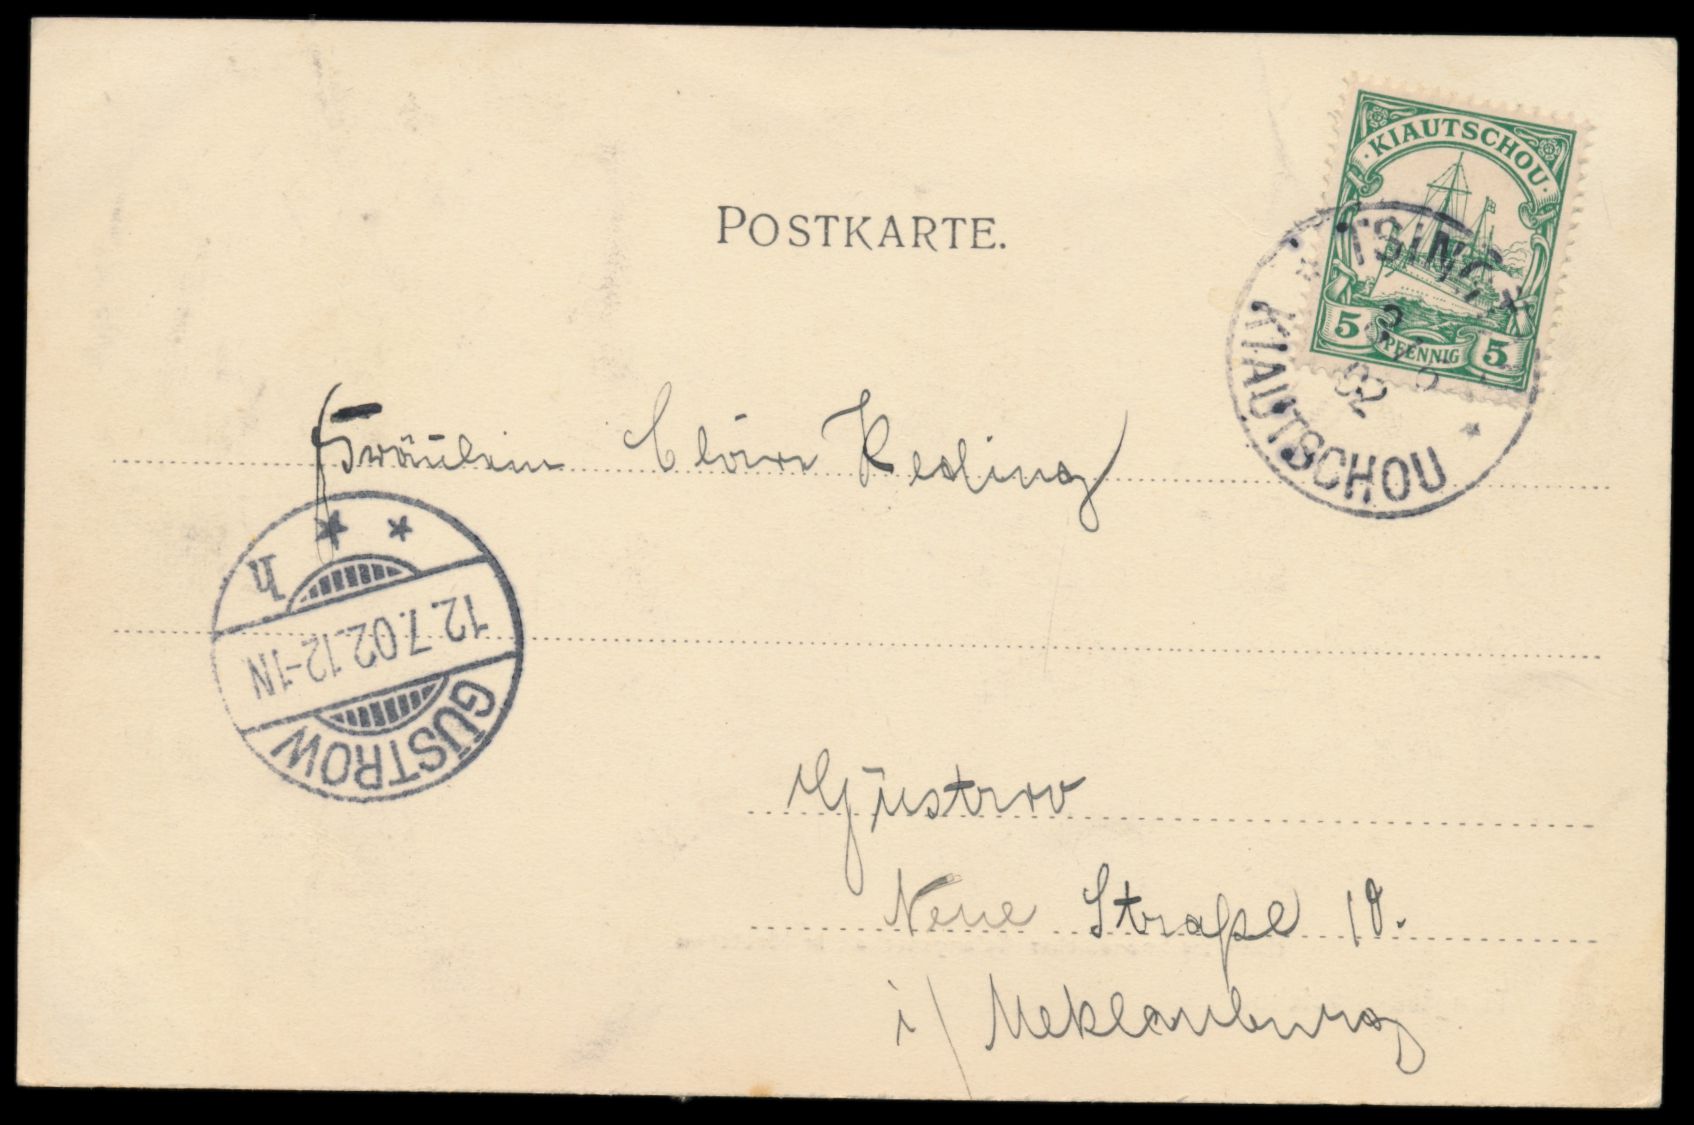 POSTKARTE.
KIAUTSCHOU
5 PFENNIG 5
TSINGT
KIAUTSCHOU
02
Fräulein Cläre Reding
h
12.7.02.12-1N
GÜSTROW
Güstrow
Neue Straße 10.
i/ Meklenburg